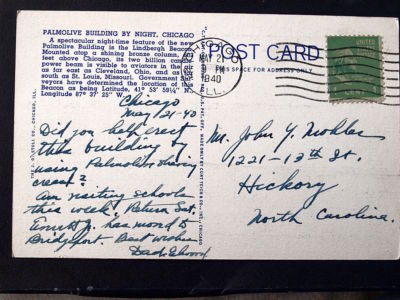 PALMOLIVE BUILDING BY NIGHT, CHICAGO
A spectacular night-time feature of the new
Palmolive Building is the Lindbergh Beacon.
Mounted atop a shining bronze column,
feet above Chicago, its two billion
power beam is visible to aviators in the air
as far east as Cleveland, Ohio, and as
south as St. Louis, Missouri. Government
veyors have determined the location of this
Beacon as being Latitude, 41° 53' 59¼" N.
Longitude 87° 37' 25" W.
CHICAGO
MAY 21
9 PM
1940
ILL.
POST CARD
THIS SPACE FOR ADDRESS ONLY
Chicago
May 21-40
Did you help erect
this building by
using Palmolive shaving
cream?
Am visiting schools
this week. Return Sat.
has moved to
Bridgeport. Best wishes
Mr. John Y. Mohler
1221-13th St.
Hickory
North Carolina.